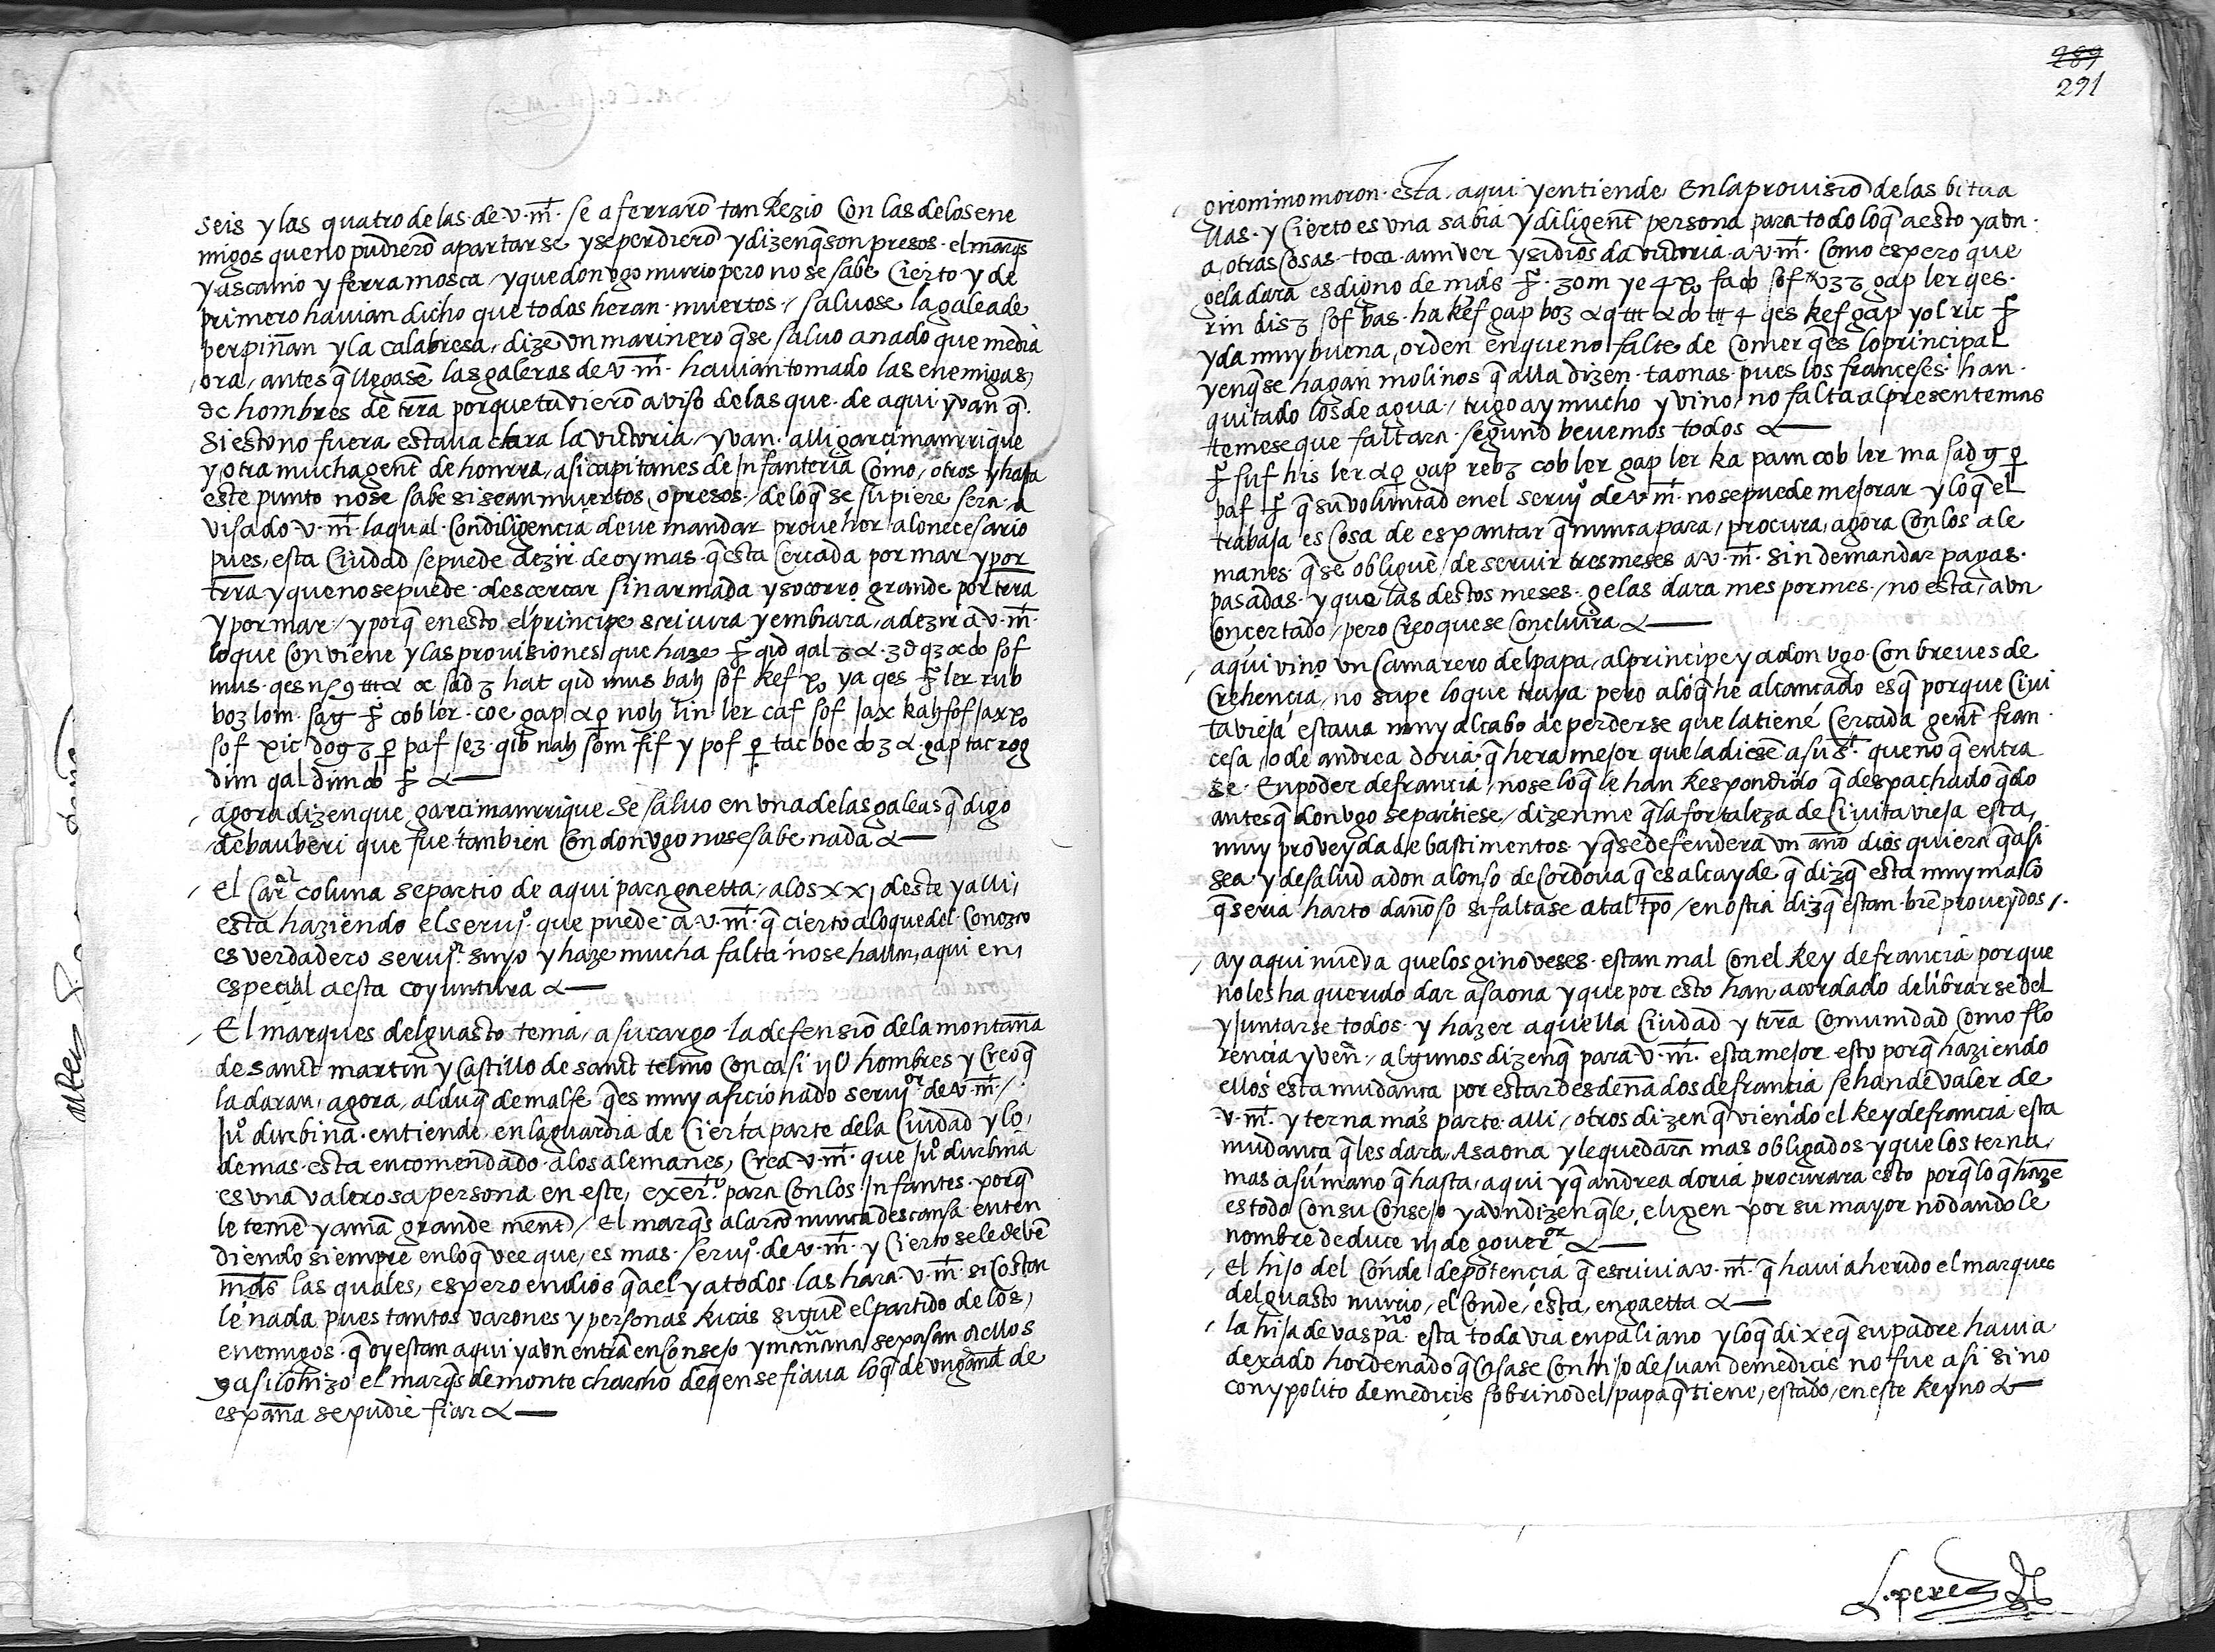 seis y las quatro de las de v. mt. se aferraro tan Rezio Con las de los ene
migos que no pudiero apartarse y se perdiero y dizen q son presos el marqs
y ascanio y ferramosca / y que don ugo murio pero no se sabe Cierto y de
primero havian dicho que todos heran muertos / saluose la galea de
perpiñan y la calabresa, dize vn marinero q se saluo a nado que media
ora, antes q llegase las galeras de v. mt. havian tomado las enemigas,
de hombres de trra porque tuviero aviso de las que de aqui yvan q
si esto no fuera estaua clara la victoria / yvan alli garcimanrrique
y otra mucha gent de honrra, asi capitanes de Infanteria Como, otros y hasta
este punto no se sabe si sean muertos, o presos / de lo q se supiere sera a
visado v. mt. la qual Con diligencia deve mandar provehor a lo necesario
pues, esta Ciudad se puede dezir de oy mas q esta Cercada por mar y por
trra y que no se puede descercar sin armada y socorro grande por trra
y por mar / y porq en esto el principe scriuira y embiara, a dezir a v. mt.
lo que Conviene y las provisiones que haze qid qal sof
mus qes sad hat qid mus bah sof kef ya qes ler rub
boz lom cob ler coe gap noh lin ler caf sof kah sof
sof paf sez qib nah som fif y pof tac boc gap tac rog
dim qal dim
agora dizen que garcimanrrique se saluo en vna de las galeas q digo
de bauberi que fue tambien Con don vgo no se sabe nada
el Carl coluna se partio de aqui para gaetta, a los xxj deste y alli,
esta haziendo el seruyo que puede a v. mt. q cierto a lo que del Conozco
es verdadero seruyor suyo y haze mucha falta no se hallar, aqui en,
especial a esta coyuntura
El marques del guasto tenia, a su cargo la defensio de la montaña
de sanct martin y Castillo de sanct telmo Con casi ijU hombres y Creo q
la daran, agora, al duq de malfe q es muy aficionado seruyor de v. mt. /
juo durbina entiende en la guardia de Cierta parte de la Ciudad y lo,
demas esta encomendado a los alemanes, Crea v. mt. que juo durbina
es vna valerosa persona en este, exerto para Con los Infantes porq
le teme y ama grande ment / El marqs alarco nunca descansa enten
diendo siempre en lo q vee que, es mas seruyo de v. mt. y Cierto se le deve
mds las quales, espero en dios q a el y a todos las hara v. mt. si Costar
le nada pues tantos varones y personas Ricas sigue el partido de los,
enemigos q oy estan aqui y avn entra en Consejo y mañana, se pasan a ellos
y asi lo hizo el marqs de monte charcho de qen se fiaua lo q de vn grand de
españa se pudie fiar
289
291
gironimo moron esta aqui y entiende En la provisio de las bitua
llas y Cierto es vna sabia y diligent persona para todo lo q a esto y avn
a, otras Cosas toca a mi ver y si dios da victoria a v. mt. Como espero que
gela dara es digno de mas zom ye fa sof gap ler qes
rin dis sof bas ha kef gap boz qes kef gap yol ric
y da muy buena, orden en que no falte de Comer q es lo principal
y en q se hagan molinos q alla dizen taonas pues los franceses han
quitado los de agua / trigo ay mucho y vino, no falta al presente mas
temese que faltara segund bevemos todos
suf his ler gap reb cob ler gap ler ka pam cob ler ma sad
paf q su voluntad en el seruyo de v. mt. no se puede mejorar y lo q el
trabaja es Cosa de espantar q nunca para / procura, agora Con los ale
manes q se oblique / de seruir tres meses a v. mt. sin demandar pagas
pasadas y que las destos meses gelas dara mes por mes / no esta, avn
Concertado / pero Creo que se Concluira
aqui vino vn Camarero del papa, al principe y a don vgo Con breves de
Crehencia, no supe lo que traya pero a lo q he alcançado es q porque Civi
ta vieja estaua muy al cabo de perderse que la tiene Cercada gent fran
cesa, o de andrea doria q hera mejor que la diese a su st. que no q entra
se En poder de francia / no se lo q le han Respondido q despachado qdo
antes q don vgo se partiese / dizenme q la fortaleza de Civita vieja esta,
muy proveyda de bastimentos y q se defendera vn año dios quiera q asi
sea y de salud a don alonso de Cordova q es alcayde q diz q esta muy malo
q seria harto dañoso si faltase a tal tpo / en ostia diz q estan bie proveydos /
ay aqui nueva que los ginoveses estan mal Con el Rey de francia porque
no les ha querido dar a saona y que por esto han acordado de librarse del
y juntarse todos y hazer aquella Ciudad y trra Comunidad Como flo
rencia y ven / algunos dizen q para v. mt. esta mejor esto porq haziendo
ellos esta mudança por estar desdeñados de francia se han de valer de
v. mt. y terna mas parte alli / otros dizen q viendo el Rey de francia esta
mudança q les dara, A saona y le quedara mas obligados y que los terna,
mas a su mano q hasta, aqui y q andrea doria procurara esto porq lo q haze
es todo Con su Consejo y avn dizen q le, eligen por su mayor no dandole
nombre de duce ni de goueror
el hijo del Conde de potencia q escriui a v. mt. q havia herido el marques
del guasto murio, el Conde, esta, en gaetta
la hija de vaspano esta toda via en paliano y lo q dixe q su padre havia
dexado hordenado q Casase Con hijo de Juan de medicis no fue asi sino
con ypolito de medicis sobrino del papa q tiene, estado, en este Reyno
L. perez